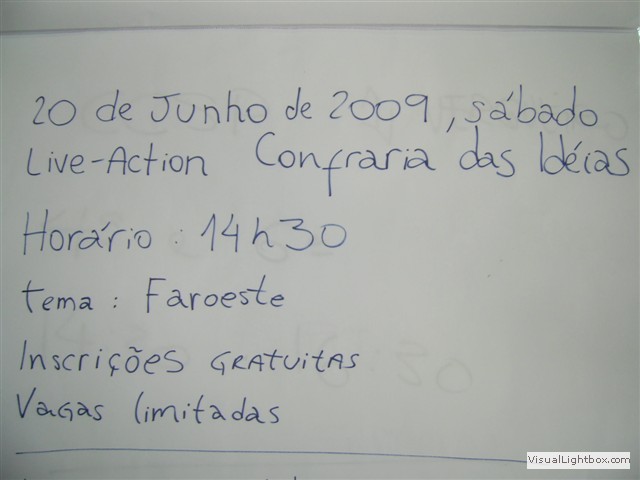 20 de Junho de 2009, sábado
Live-Action Confraria das Idéias
Horário : 14h30
Tema : Faroeste
Inscrições GRATUITAS
Vagas limitadas
VisualLightbox.com